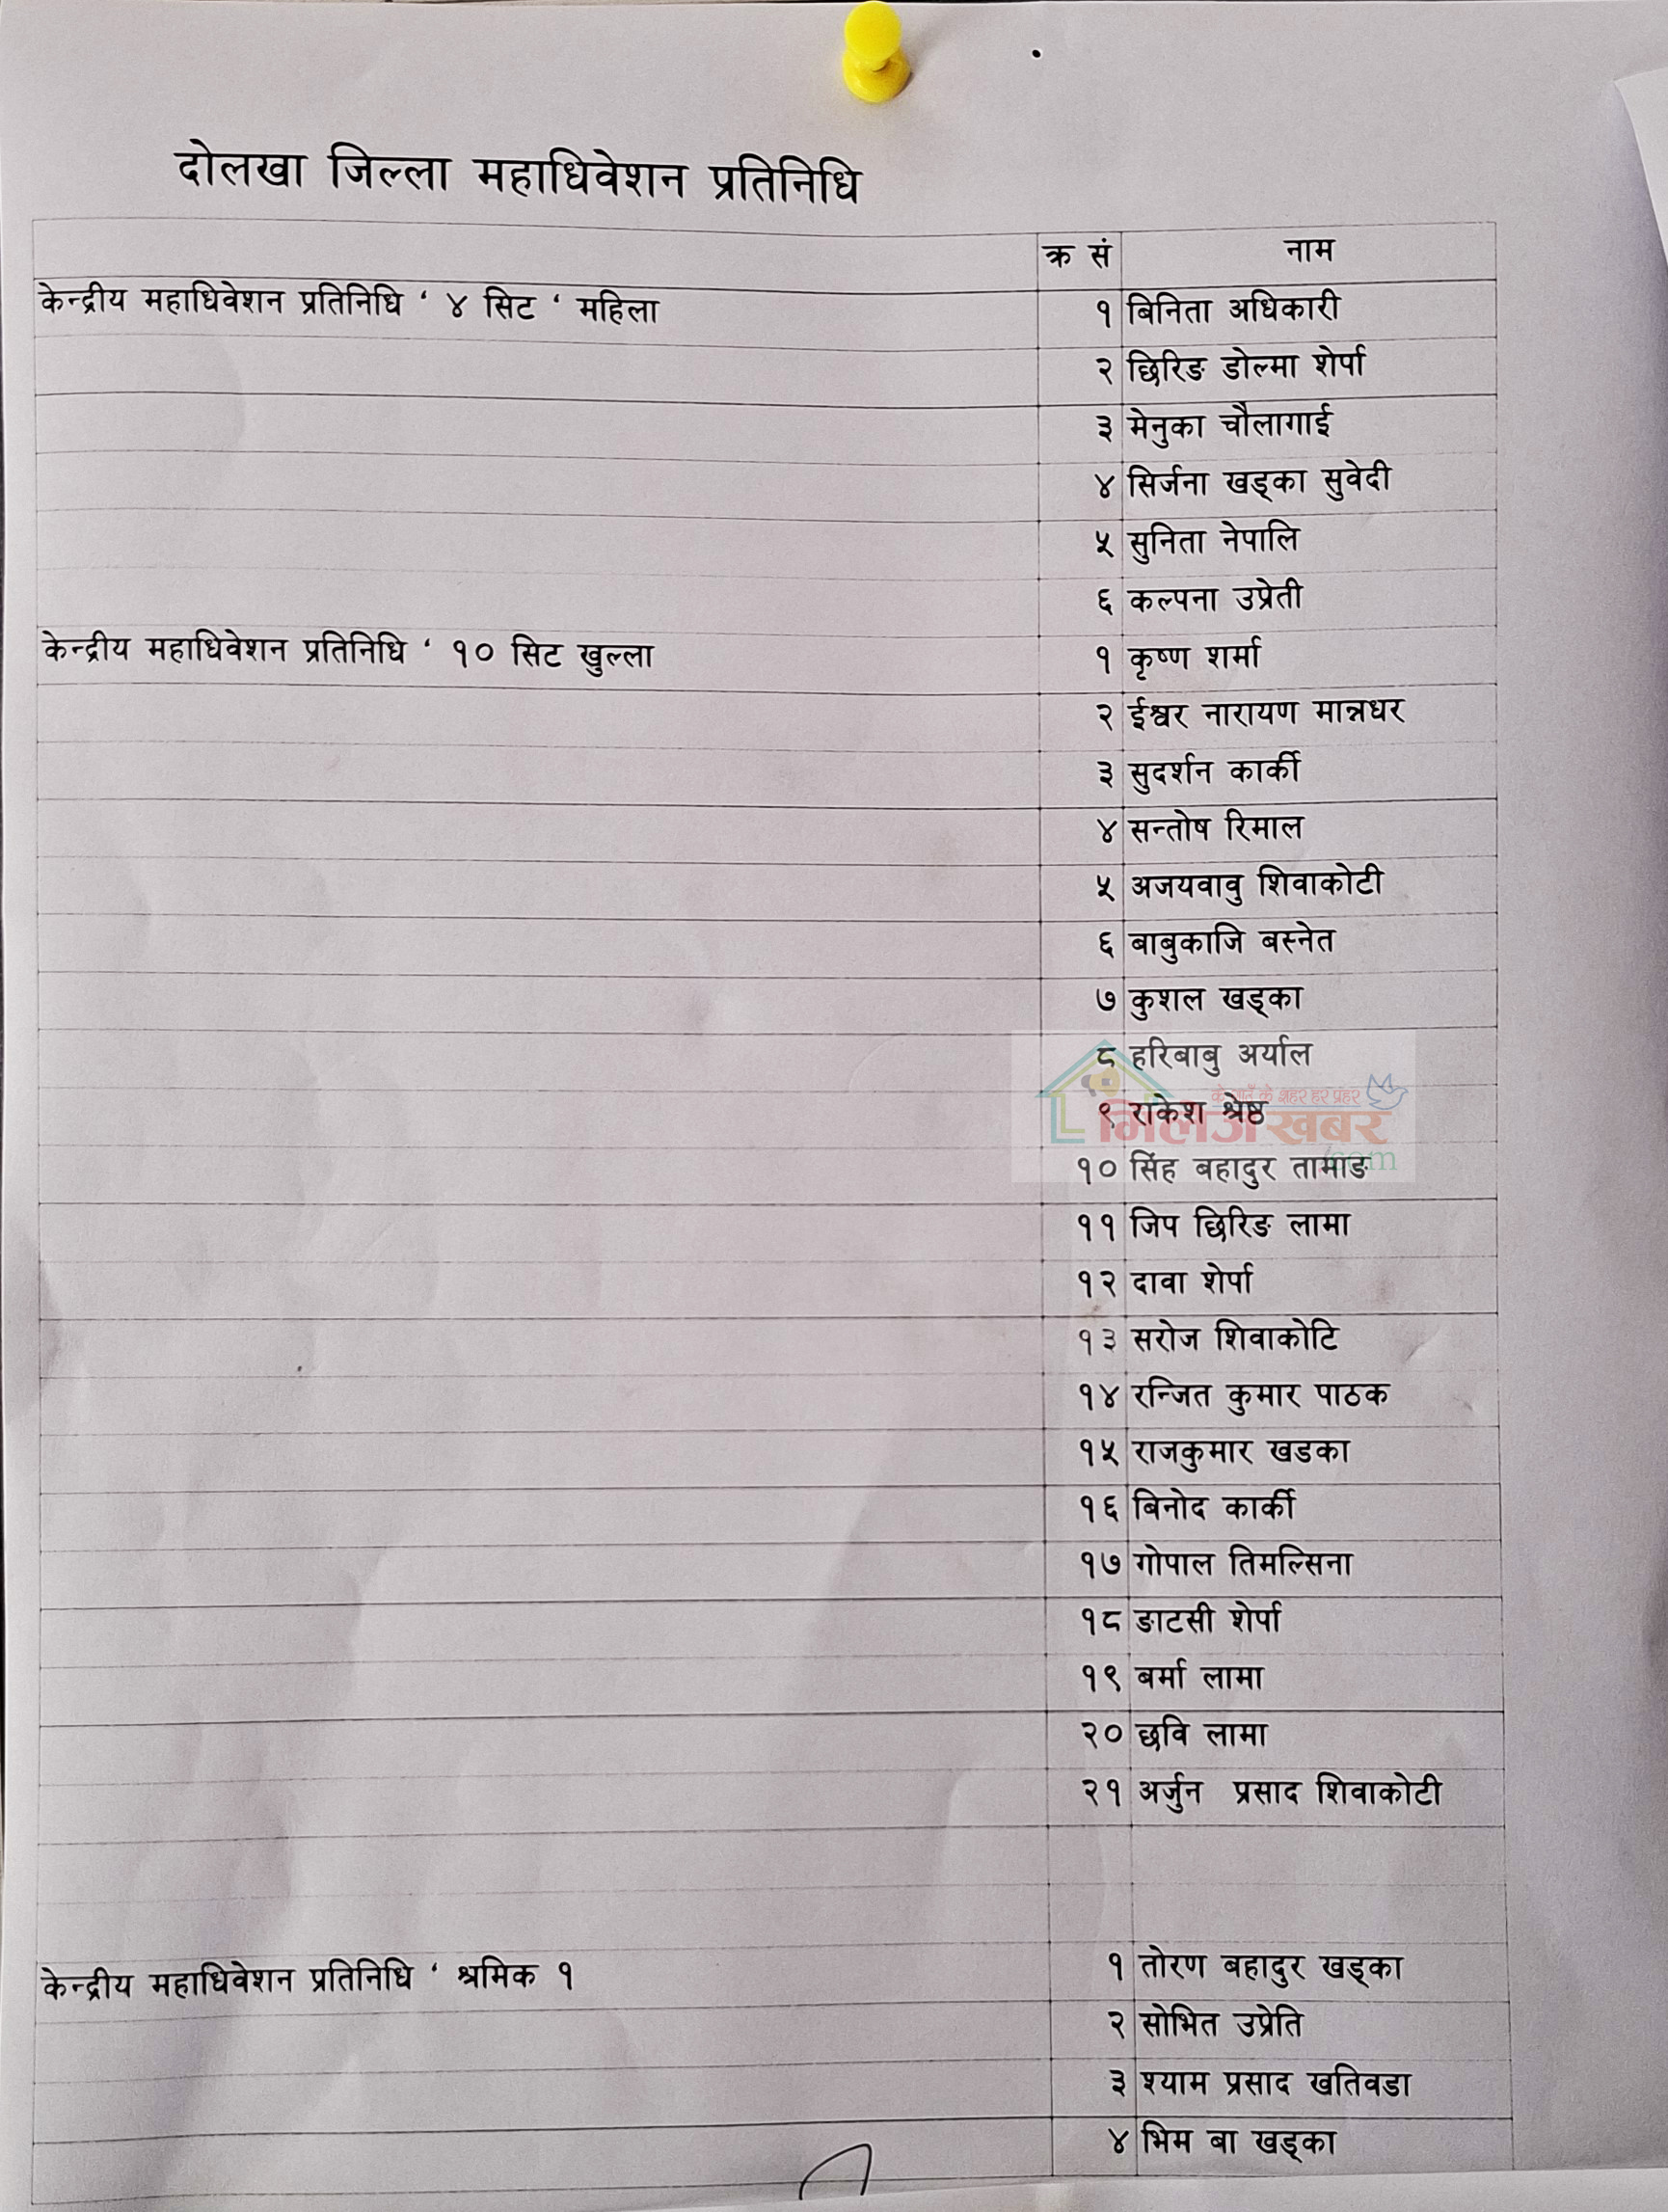 दोलखा जिल्ला महाधिवेशन प्रतिनिधि
क्र सं नाम
केन्द्रीय महाधिवेशन प्रतिनिधि ‘ ४ सिट ‘ महिला १ बिनिता अधिकारी
२ छिरिङ डोल्मा शेर्पा
३ मेनुका चौलागाई
४ सिर्जना खड्का सुवेदी
५ सुनिता नेपालि
६ कल्पना उप्रेती
केन्द्रीय महाधिवेशन प्रतिनिधि ‘ १० सिट खुल्ला १ कृष्ण शर्मा
२ ईश्वर नारायण मान्नधर
३ सुदर्शन कार्की
४ सन्तोष रिमाल
५ अजयवावु शिवाकोटी
६ बाबुकाजि बस्नेत
७ कुशल खड्का
८ हरिबाबु अर्याल
के गाउँ के शहर हर प्रहर
९ राकेश श्रेष्ठ
भिलेज खबर
.com
१० सिंह बहादुर तामाङ
११ जिप छिरिङ लामा
१२ दावा शेर्पा
१३ सरोज शिवाकोटि
१४ रन्जित कुमार पाठक
१५ राजकुमार खडका
१६ बिनोद कार्की
१७ गोपाल तिमल्सिना
१८ ङाटसी शेर्पा
१९ बर्मा लामा
२० छवि लामा
२१ अर्जुन प्रसाद शिवाकोटी
केन्द्रीय महाधिवेशन प्रतिनिधि ‘ श्रमिक १ १ तोरण बहादुर खड्का
२ सोभित उप्रेति
३ श्याम प्रसाद खतिवडा
४ भिम बा खड्का